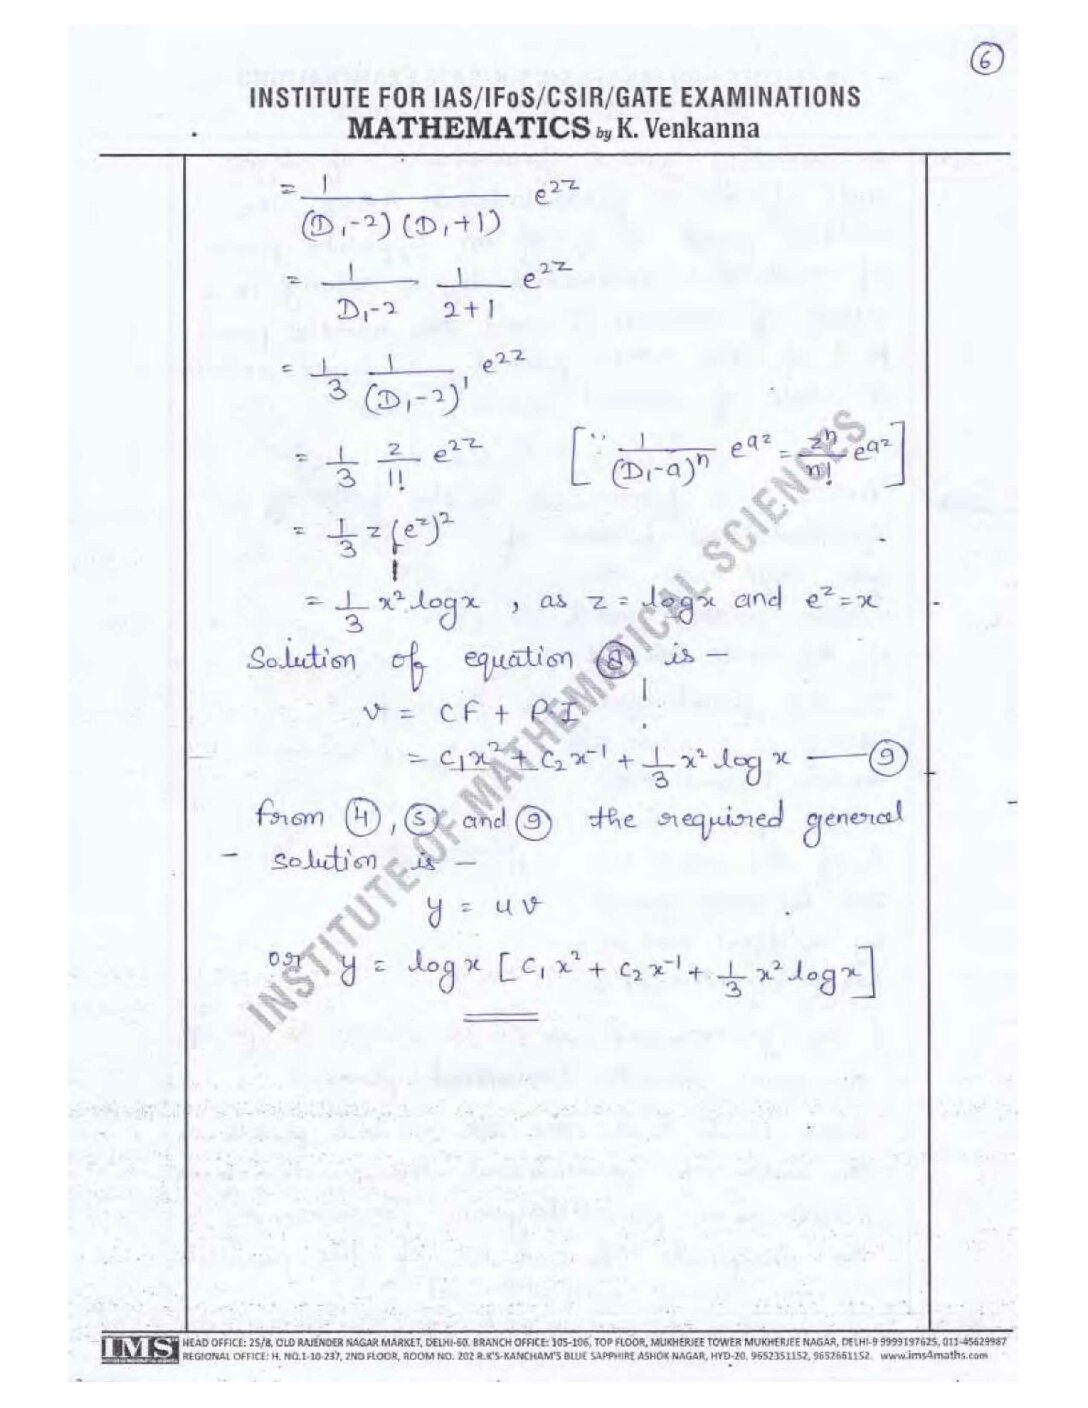 6
INSTITUTE FOR IAS/IFoS/CSIR/GATE EXAMINATIONS
MATHEMATICS by K. Venkanna
= 1/((D₁-2)(D₁+1)) e^{2z}
= 1/(D₁-2) 1/(2+1) e^{2z}
= 1/3 1/(D₁-2)' e^{2z}
= 1/3 z/1! e^{2z} [∵ 1/(D₁-a)^n e^{az} = z^n/n! e^{az}]
= 1/3 z(e^z)^2
= 1/3 x² logx , as z = logx and e^z = x
Solution of equation is -
v = CF + PI
= C₁x² + C₂x⁻¹ + 1/3 x² log x — 9
from 4, 5 and 9 the required general
solution is -
y = uv
or y = logx [C₁x² + C₂x⁻¹ + 1/3 x² logx]
INSTITUTE OF MATHEMATICAL SCIENCES
IMS
HEAD OFFICE: 25/8, OLD RAJENDER NAGAR MARKET, DELHI-60. BRANCH OFFICE: 105-106, TOP FLOOR, MUKHERJEE TOWER MUKHERJEE NAGAR, DELHI-9 9999197625, 011-45629987
REGIONAL OFFICE: H. NO.1-10-237, 2ND FLOOR, ROOM NO. 202 R.K'S-KANCHAM'S BLUE SAPPHIRE ASHOK NAGAR, HYD-20. 9652351152, 9652661152. www.ims4maths.com